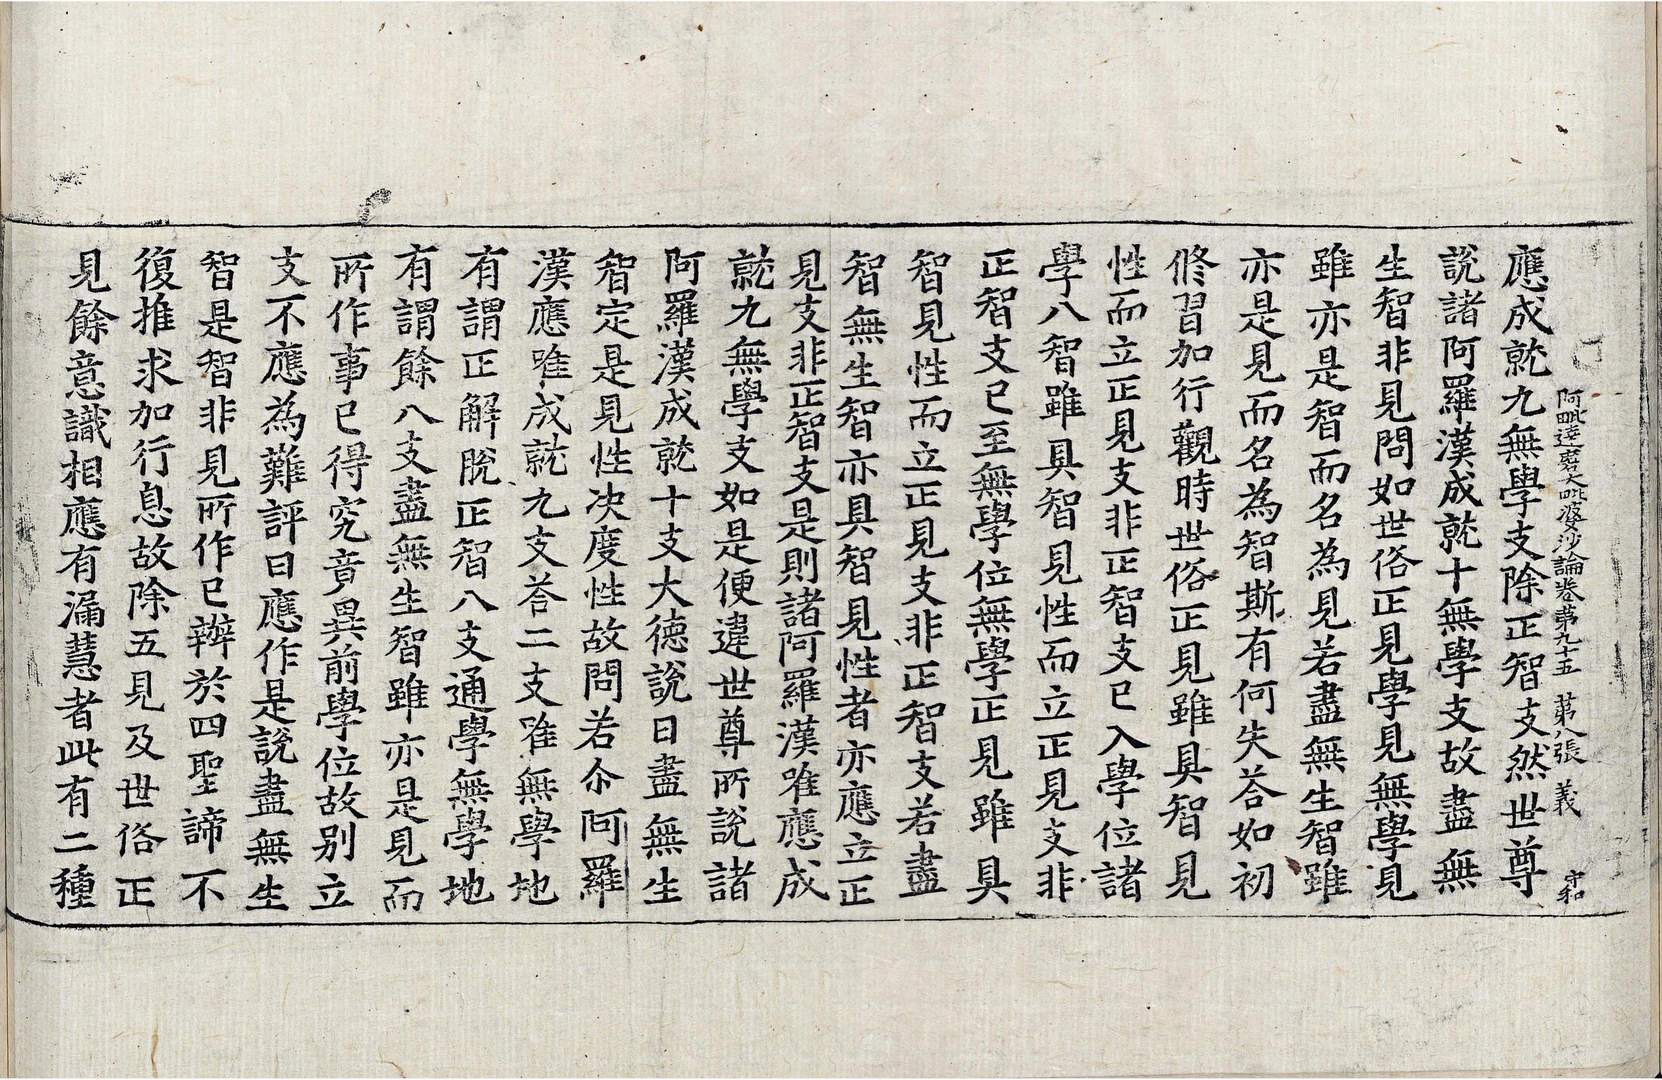 阿毗達磨大毗婆沙論卷苐九十五 苐八張 義 守和
應成就九無學支除正智支然世尊
說諸阿羅漢成就十無學支故盡無
生智非見問如世俗正見學見無學見
雖亦是智而名為見若盡無生智雖
亦是見而名為智斯有何失荅如初
修習加行觀時世俗正見雖具智見
性而立正見支非正智支已入學位諸
學八智雖具智見性而立正見支非
正智支已至無學位無學正見雖具
智見性而立正見支非正智支若盡
智無生智亦具智見性者亦應立正
見支非正智支是則諸阿羅漢唯應成
就九無學支如是便違世尊所說諸
阿羅漢成就十支大德說曰盡無生
智定是見性决度性故問若尒阿羅
漢應唯成就九支荅二支唯無學地
有謂正解脫正智八支通學無學地
有謂餘八支盡無生智雖亦是見而
所作事已得究竟異前學位故别立
支不應為難評曰應作是說盡無生
智是智非見所作已辦於四聖諦不
復推求加行息故除五見及世俗正
見餘意識相應有漏慧者此有二種